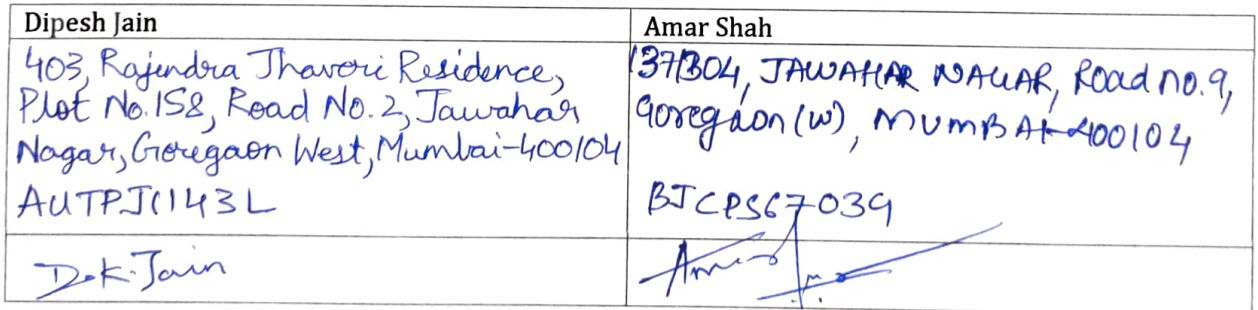 Dipesh Jain
403, Rajendra Jhaveri Residence,
Plot No.158, Road No. 2, Jawahar
Nagar, Goregaon West, Mumbai-400104
AUTPJ1143L
D.K.Jain
Amar Shah
137/304, JAWAHAR NAGAR, Road no.9,
Goregaon (W), MUMBAI-400104
BJCPS6703G